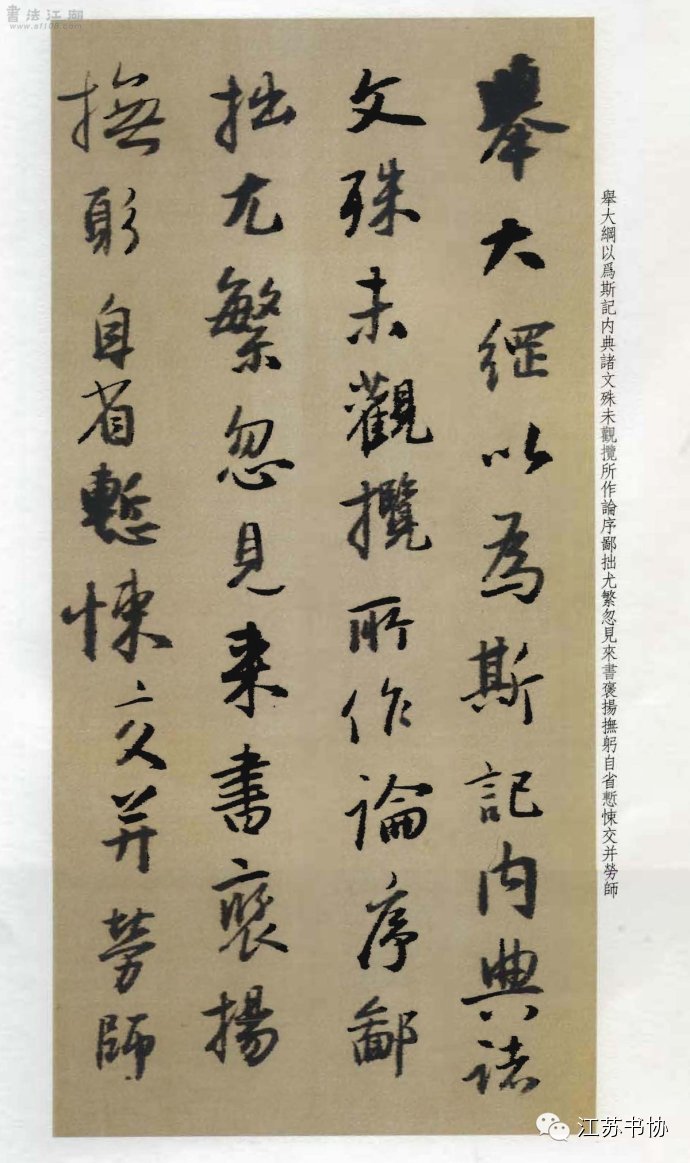 書法江湖
舉大綱以為斯記内典諸
文殊未觀攬所作論序鄙
拙尤繁忽見来書褒揚
撫躬自省慙悚交并勞師
舉大綱以爲斯記内典諸文殊未觀攬所作論序鄙拙尤繁忽見來書褒揚撫躬自省慙悚交并勞師
江苏书协